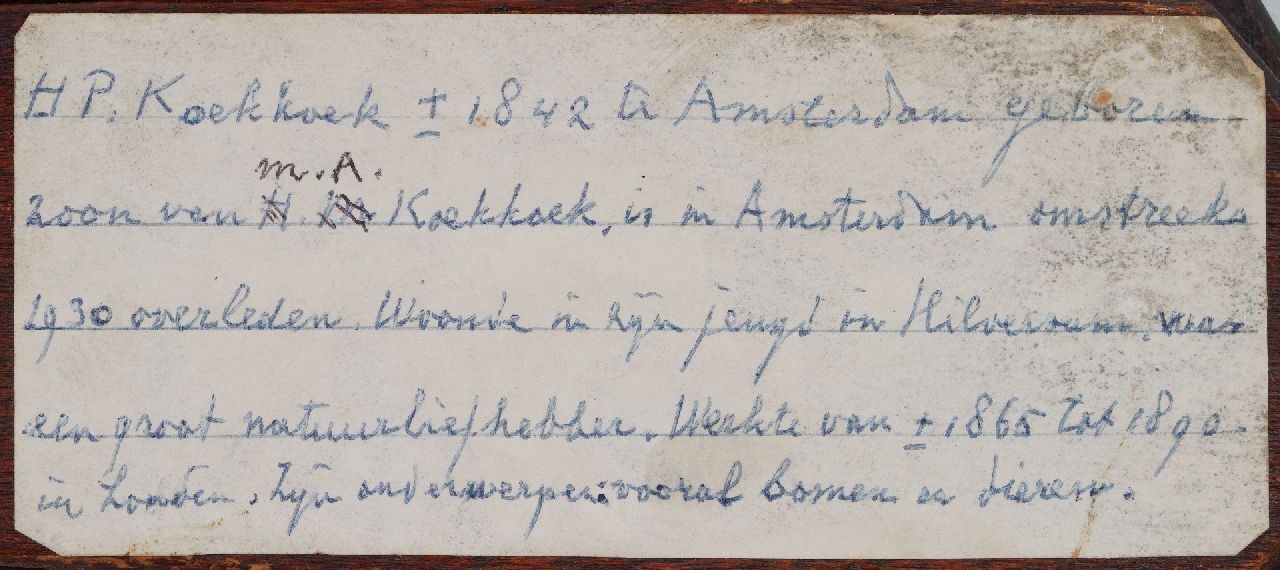 H P. Koekkoek ± 1842 te Amsterdam geboren
m. A.
zoon van H. Koekkoek, is in Amsterdam omstreeks
1930 overleden. Woonde in zijn jeugd in Hilversum, was
een groot natuurliefhebber. Werkte van ± 1865 tot 1890
in Londen. Zijn onderwerpen: vooral bomen en dieren.